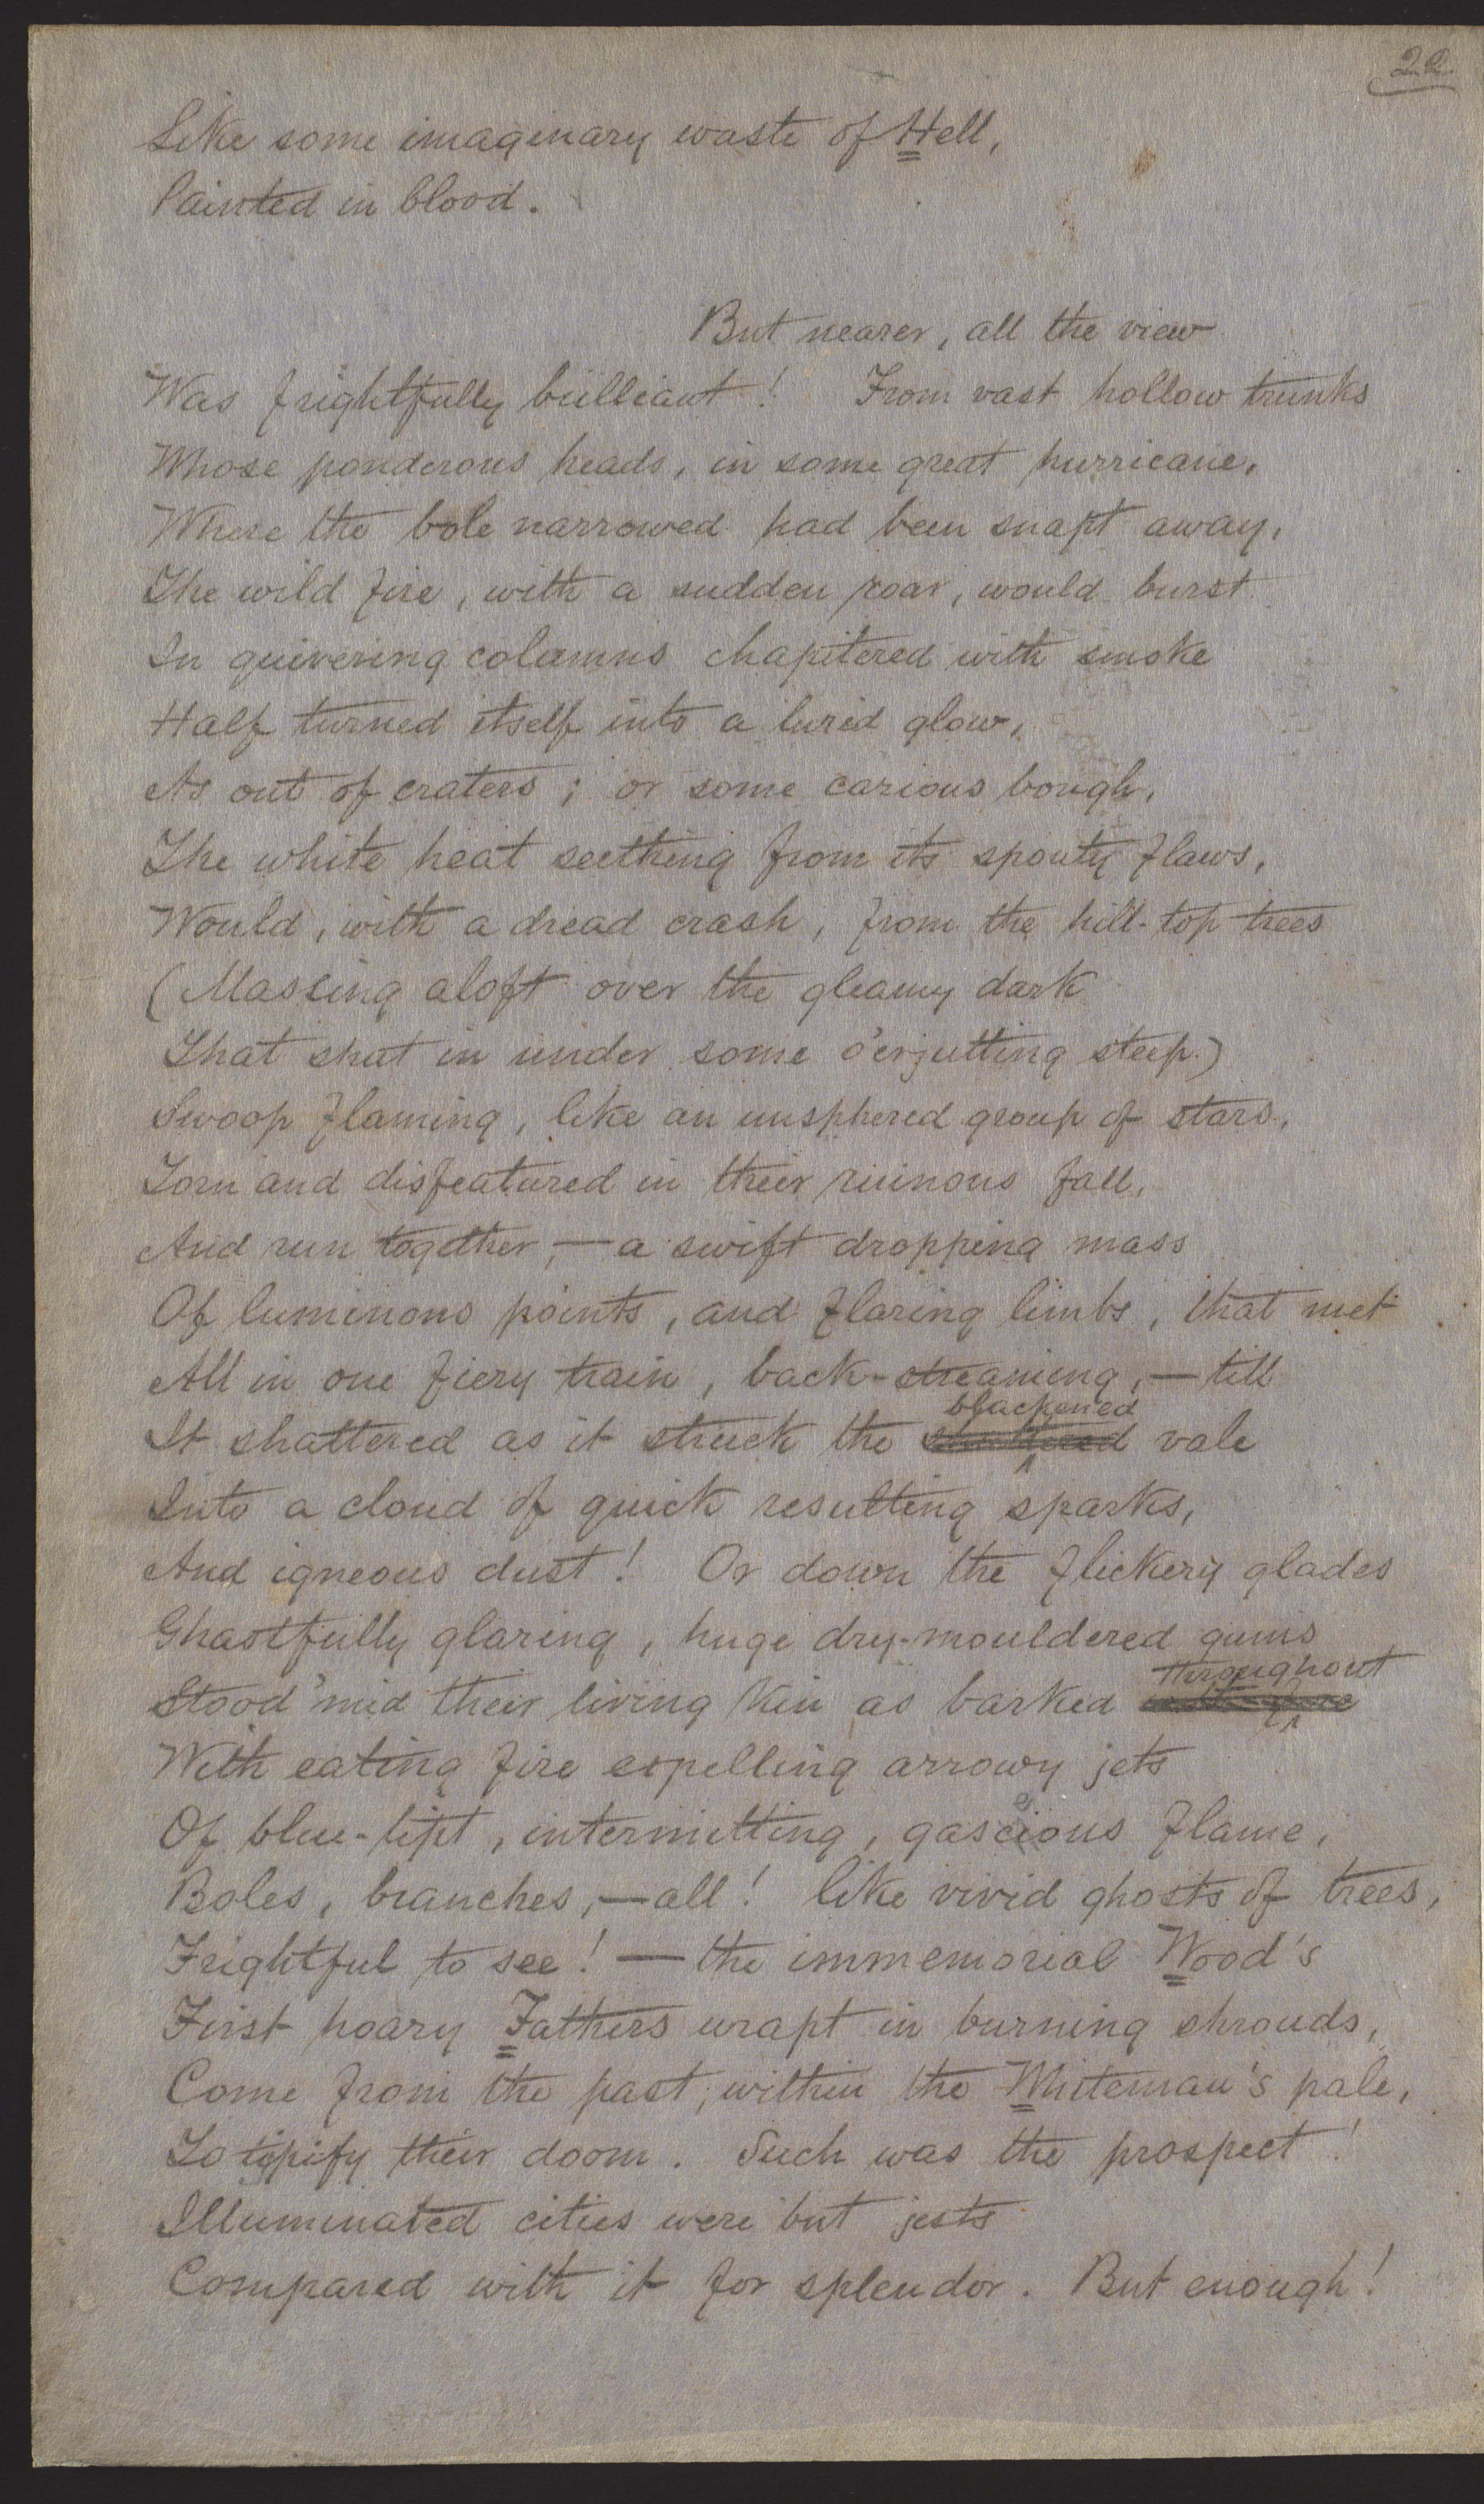 22
Like some imaginary waste of Hell,
Painted in blood.
But nearer, all the view
Was frightfully brilliant! From vast hollow trunks
Whose ponderous heads, in some great hurricane,
Where the bole narrowed had been snapt away,
The wild fire, with a sudden roar, would burst
In quivering columns chapitered with smoke
Half turned itself into a lurid glow,
As out of craters; or some carious bough,
The white heat seething from its spouty flaws,
Would, with a dread crash, from the hill-top trees
(Massing aloft over the gleamy dark
That shut in under some o'erjutting steep.)
Swoop flaming, like an unsphered group of stars,
Torn and disfeatured in their ruinous fall,
And run together,—a swift dropping mass
Of luminous points, and flaring limbs, that met
All in one fiery train, back-streaming,—till
blackened
It shattered as it struck the vale
Into a cloud of quick resulting sparks,
And igneous dust! Or down the flickery glades
Ghastfully glaring, huge dry-mouldered gums
throughout
Stood 'mid their living kin as barked
With eating fire expelling arrowy jets
Of blue-lipt, intermitting, gaseous flame,
Boles, branches,—all! like vivid ghosts of trees,
Frightful to see!—the immemorial Wood's
First hoary Fathers wrapt in burning shrouds,
Come from the past, within the Whiteman's pale,
To typify their doom. Such was the prospect!
Illuminated cities were but jests
Compared with it for splendor. But enough!